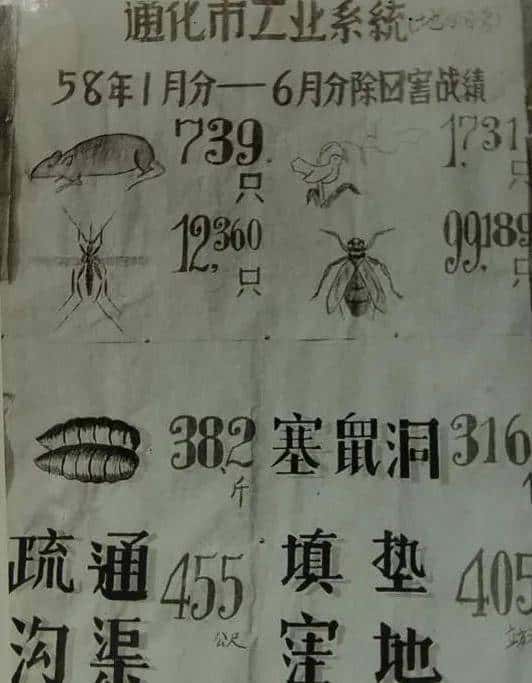 通化市工业系統
58年1月分——6月分除四害战績
739只
1731只
12,360只
99,189只
38.2斤
塞鼠洞316
疏通沟渠455公尺
填垫窪地405